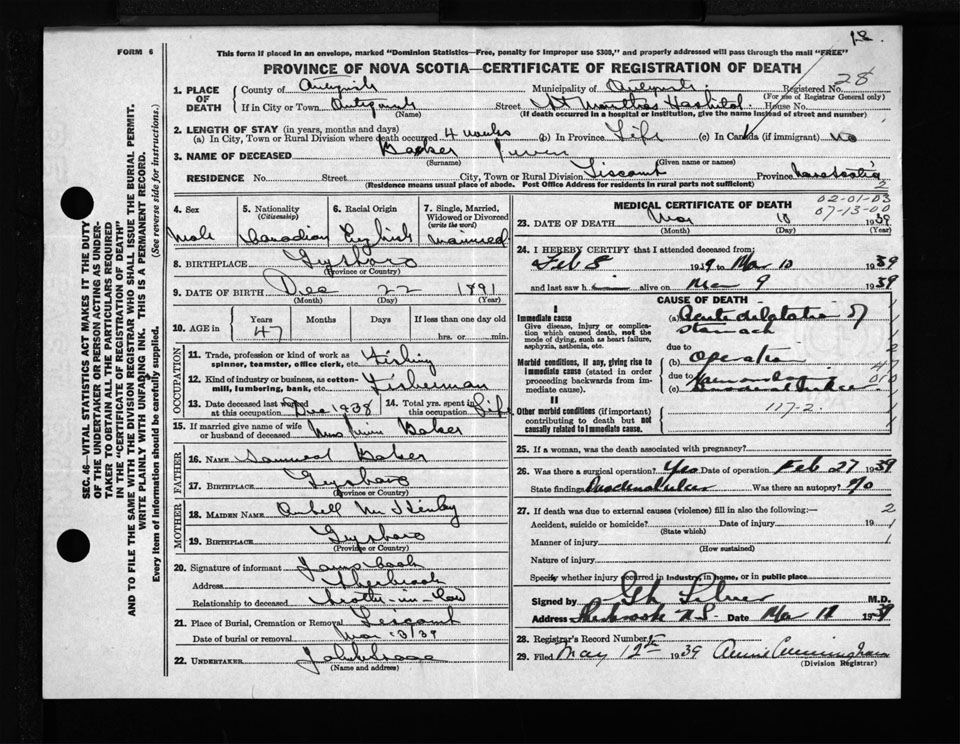 18.
FORM 6
This form if placed in an envelope, marked "Dominion Statistics—Free, penalty for improper use $300," and properly addressed will pass through the mail "FREE"
PROVINCE OF NOVA SCOTIA—CERTIFICATE OF REGISTRATION OF DEATH
1. PLACE OF DEATH
County of Antigonish Municipality of Antigonish Registered No. 28
(For use of Registrar General only)
If in City or Town Antigonish Street St Marthas Hospital House No.
(Name) (If death occurred in a hospital or institution, give the name instead of street and number)
2. LENGTH OF STAY (in years, months and days)
(a) In City, Town or Rural Division where death occurred 4 weeks (b) In Province Life (c) In Canada (if immigrant) no
3. NAME OF DECEASED Baker Irvin
(Surname) (Given name or names)
RESIDENCE No. Street City, Town or Rural Division Liscomb Province Nova Scotia
(Residence means usual place of abode. Post Office Address for residents in rural parts not sufficient) 2
4. Sex 5. Nationality (Citizenship) 6. Racial Origin 7. Single, Married, Widowed or Divorced (write the word)
Male Canadian English Married
8. BIRTHPLACE Gysboro
(Province or Country)
9. DATE OF BIRTH Dec 22 1891
(Month) (Day) (Year)
10. AGE in Years Months Days If less than one day old
47 hrs. or min.
OCCUPATION
11. Trade, profession or kind of work as spinner, teamster, office clerk, etc. Fishing
12. Kind of industry or business, as cotton-mill, lumbering, bank, etc. Fisherman
13. Date deceased last worked at this occupation Dec 1938 14. Total yrs. spent in this occupation Life
15. If married give name of wife or husband of deceased Mrs Irvin Baker
FATHER
16. NAME Samuel Baker
17. BIRTHPLACE Gysboro
(Province or Country)
MOTHER
18. MAIDEN NAME
19. BIRTHPLACE Gysboro
(Province or Country)
20. Signature of informant James
Address Sherbrook
Relationship to deceased brother-in-law
21. Place of Burial, Cremation or Removal Liscomb
Date of burial or removal Mar 13/39
22. UNDERTAKER
(Name and address)
MEDICAL CERTIFICATE OF DEATH
02-01-03
07-13-00
23. DATE OF DEATH Mar 10 1939
(Month) (Day) (Year)
24. I HEREBY CERTIFY that I attended deceased from:
Feb 8 1939 to Mar 10 1939
and last saw him alive on Mar 9 1939
CAUSE OF DEATH
I
Immediate cause
Give disease, injury or complication which caused death, not the mode of dying, such as heart failure, asphyxia, asthenia, etc.
(a) Acute dilatation of stomach
due to
Morbid conditions, if any, giving rise to immediate cause (stated in order proceeding backwards from immediate cause).
(b) Operation
due to
(c)
II
Other morbid conditions (if important) contributing to death but not causally related to immediate cause.
117-2.
25. If a woman, was the death associated with pregnancy?
26. Was there a surgical operation? Yes Date of operation Feb 27 1939
State findings Duodenal ulcer Was there an autopsy? No
27. If death was due to external causes (violence) fill in also the following:— 2
Accident, suicide or homicide? Date of injury 19 1
(State which)
Manner of injury 1
(How sustained)
Nature of injury
Specify whether injury occurred in industry, in home, or in public place
Signed by M.D.
Address Sherbrooke N S Date Mar 1939
28. Registrar's Record Number
29. Filed May 12th 1939 Annie Cunningham
(Division Registrar)
SEC. 46—VITAL STATISTICS ACT MAKES IT THE DUTY
OF THE UNDERTAKER OR PERSON ACTING AS UNDER-
TAKER TO OBTAIN ALL THE PARTICULARS REQUIRED
IN THE "CERTIFICATE OF REGISTRATION OF DEATH"
AND TO FILE THE SAME WITH THE DIVISION REGISTRAR WHO SHALL ISSUE THE BURIAL PERMIT.
WRITE PLAINLY WITH UNFADING INK. THIS IS A PERMANENT RECORD.
Every item of information should be carefully supplied. (See reverse side for instructions.)